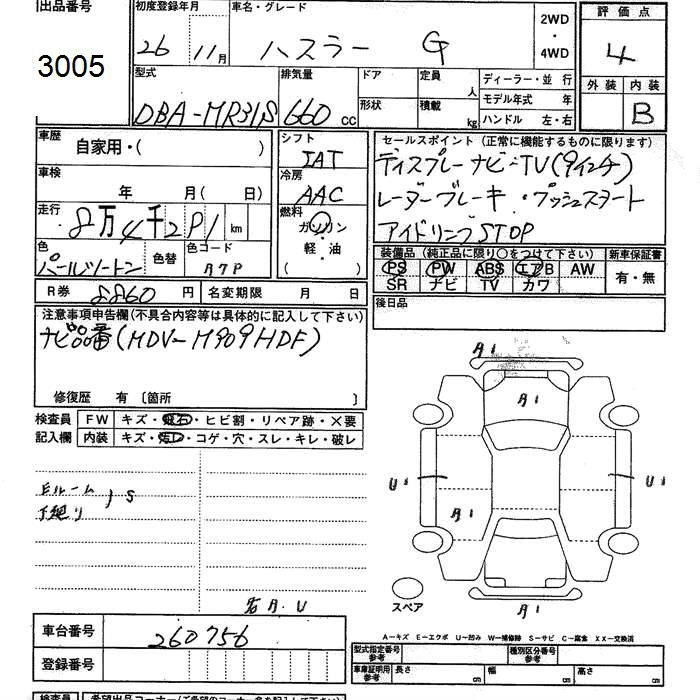 出品番号
3005
初度登録年月
26 11月
車名・グレード
ハスラー G
2WD
・
4WD
評価点
4
外装 内装
B
型式
DBA-MR31S
排気量
660 cc
ドア
形状
定員
人
積載
kg
ディーラー・並 行
モデル年式 年
ハンドル 左・右
車歴
自家用・( )
車検
年 月( 日)
走行
8万4千2 km
色
パールツートン
色替
色コード
A7P
シフト
IAT
冷房
AAC
燃料
ガソリン
・
軽・油
セールスポイント (正常に機能するものに限ります)
ディスプレーナビ・TV(9インチ)
レーダーブレーキ・プッシュスタート
アイドリングSTOP
装備品 (純正品に限り○をつけて下さい)
PS PW ABS エアB AW
SR ナビ TV カワ
新車保証書
有・無
R券 8860 円
名変期限 月 日
後日品
注意事項申告欄(不具合内容等は具体的に記入して下さい)
ナビ品番(MDV-M909HDF)
修復歴 有 〔箇所 〕
検査員
記入欄
FW キズ・飛石・ヒビ割・リペア跡・X要
内装 キズ・汚レ・コゲ・穴・スレ・キレ・破レ
S
A1
A1
U1
U1
A1
A1
スペア
A・U
A−キズ E−エクボ U−凹み W−補修跡 S−サビ C−腐食 XX−交換済
車台番号 260756
登録番号
型式指定番号
参考
種別区分番号
参考
車庫証明用
参考
長さ cm
幅 cm
高さ cm
検査員
希望出品コーナー(ご希望のコーナー名を記入して下さい)